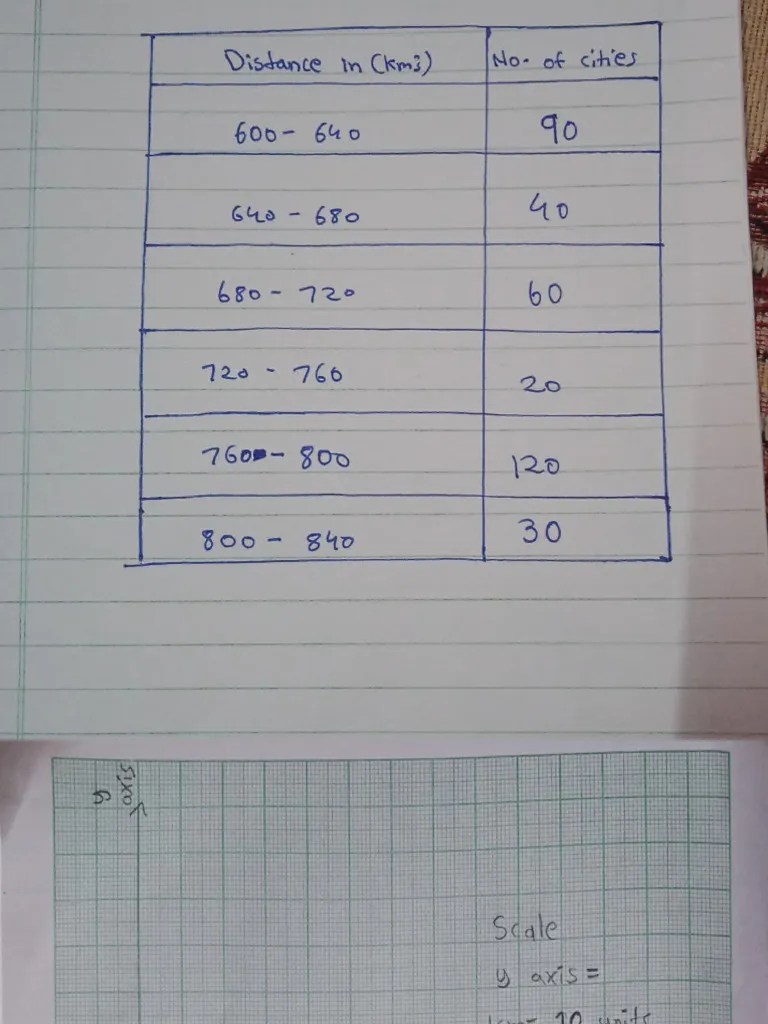 Distance in (kms) No. of cities
600 - 640 90
640 - 680 40
680 - 720 60
720 - 760 20
760 - 800 120
800 - 840 30
y axis
Scale
y axis =
1cm = 10 units